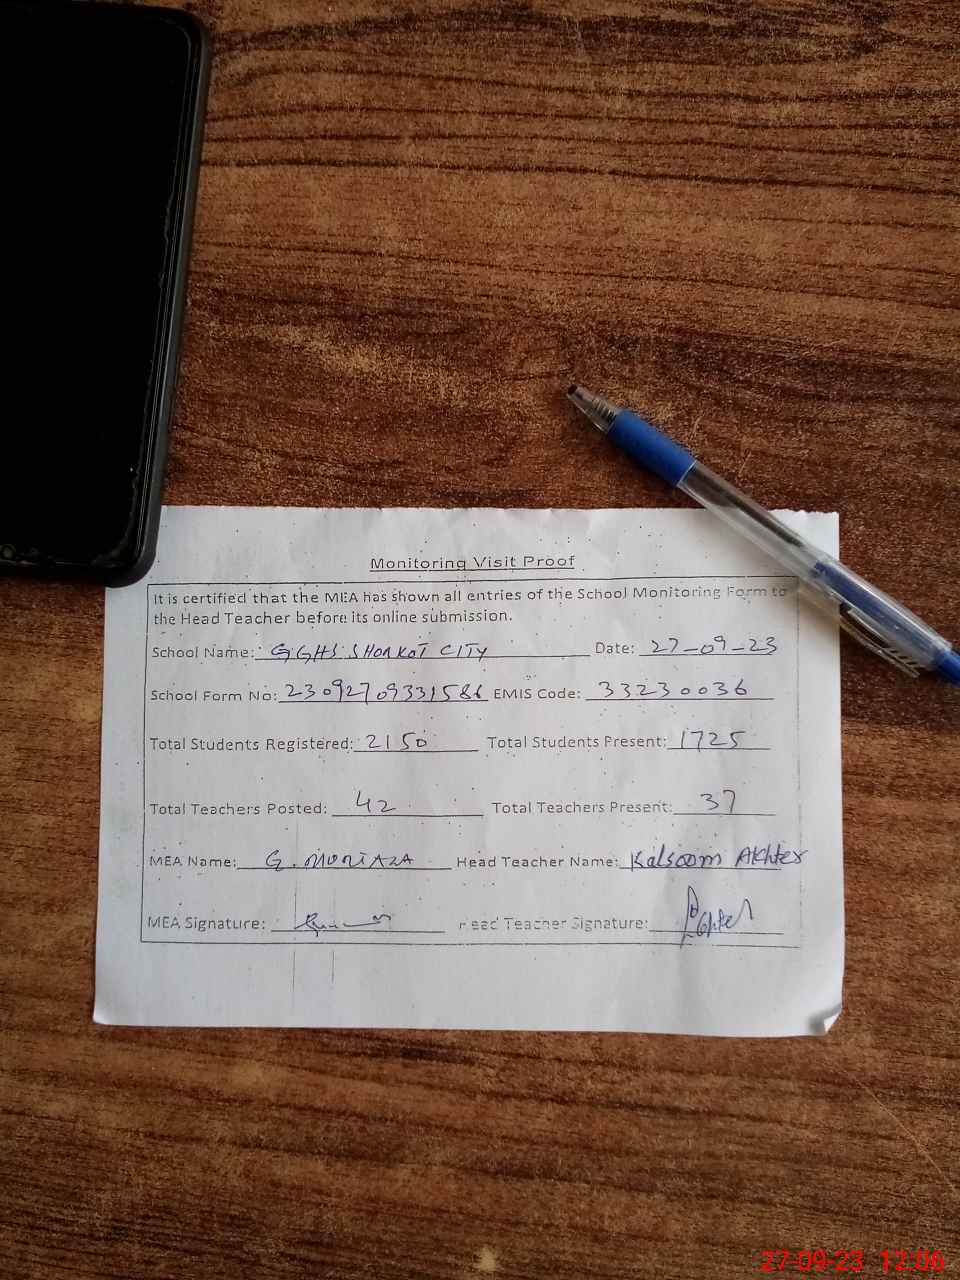 Monitoring Visit Proof
It is certified that the MEA has shown all entries of the School Monitoring Form to
the Head Teacher before its online submission.
School Name: GGHS SHORKOT CITY Date: 27-09-23
School Form No: 23092709331586 EMIS Code: 33230036
Total Students Registered: 2150 Total Students Present: 1725
Total Teachers Posted: 42 Total Teachers Present: 37
MEA Name: G. Head Teacher Name: Kalsoom Akhter
MEA Signature: Head Teacher Signature:
27-09-23 12:06